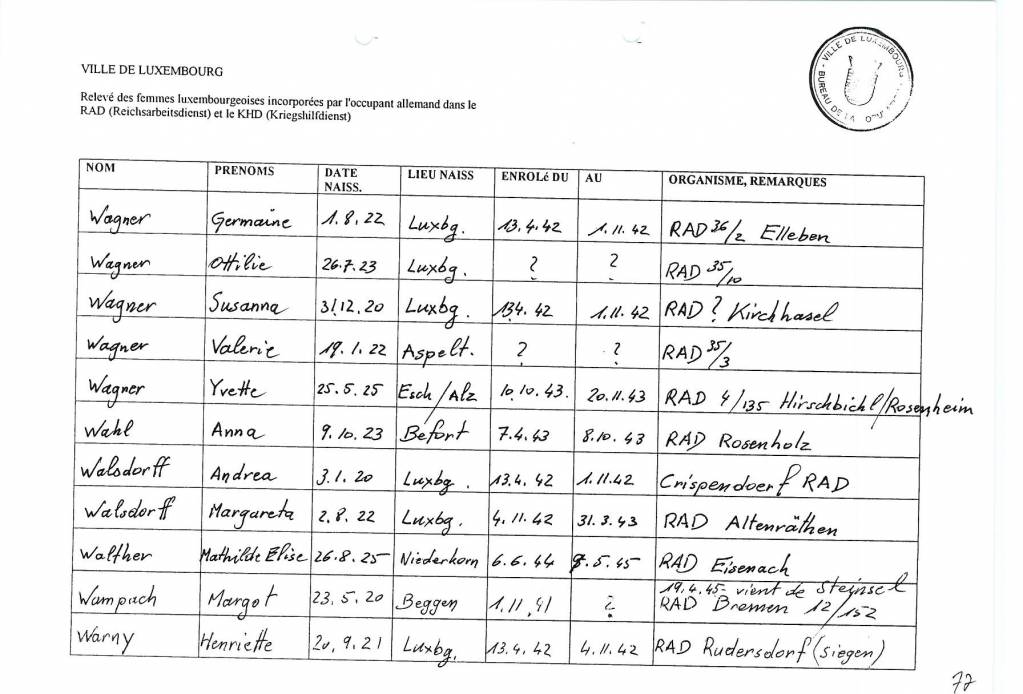 VILLE DE LUXEMBOURG
VILLE DE LUXEMBOURG
BUREAU DE LA
Relevé des femmes luxembourgeoises incorporées par l'occupant allemand dans le
RAD (Reichsarbeitsdienst) et le KHD (Kriegshilfdienst)
NOM PRENOMS DATE NAISS. LIEU NAISS ENROLé DU AU ORGANISME, REMARQUES
Wagner Germaine 1.8.22 Luxbg. 13.4.42 1.11.42 RAD 36/2 Elleben
Wagner Ottilie 26.7.23 Luxbg. ? ? RAD 35/10
Wagner Susanna 31.12.20 Luxbg. 13.4.42 1.11.42 RAD ? Kirchhasel
Wagner Valerie 19.1.22 Aspelt. ? ? RAD 35/3
Wagner Yvette 25.5.25 Esch/Alz 10.10.43. 20.11.43 RAD 4/135 Hirschbichl/Rosenheim
Wahl Anna 9.10.23 Befort 7.4.43 8.10.43 RAD Rosenholz
Walsdorff Andrea 3.1.20 Luxbg. 13.4.42 1.11.42 Crispendoerf RAD
Walsdorff Margareta 2.8.22 Luxbg. 4.11.42 31.3.43 RAD Altenräthen
Walther Mathilde Elise 26.8.25 Niederkorn 6.6.44 .5.45 RAD Eisenach
19.4.45 vient de Steinsel
Wampach Margot 23.5.20 Beggen 1.11.41 ? RAD Bremen 12/152
Warny Henriette 20.9.21 Luxbg. 13.4.42 4.11.42 RAD Rudersdorf (siegen)
77